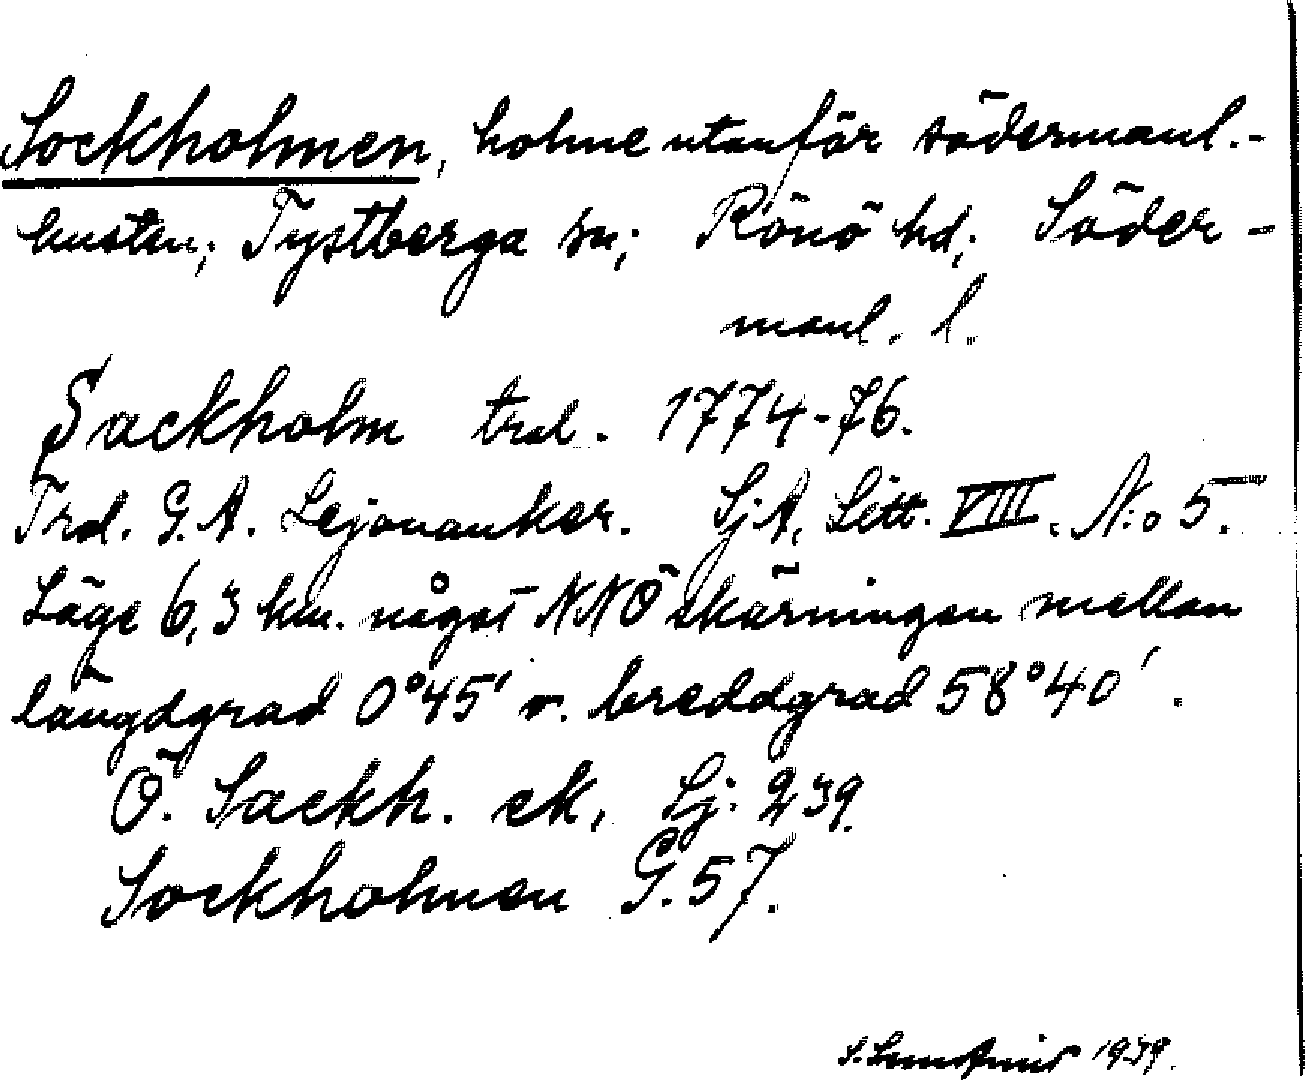 Sockholmen, holme utanför södermanl.-
kusten; Tystberga sn; Rönö hd; Söder-
manl. l.
Sackholm trol. 1774-76.
Trol. G. A. Lejonanker. SjA, Litt. VIII. N:o 5.
Läge 6,3 km. något NNÖ skärningen mellan
längdgrad 0°45' v. breddgrad 58°40'.
Ö. Sackh. ek, Sj. 239.
Sockholmen G. 57.
1939.